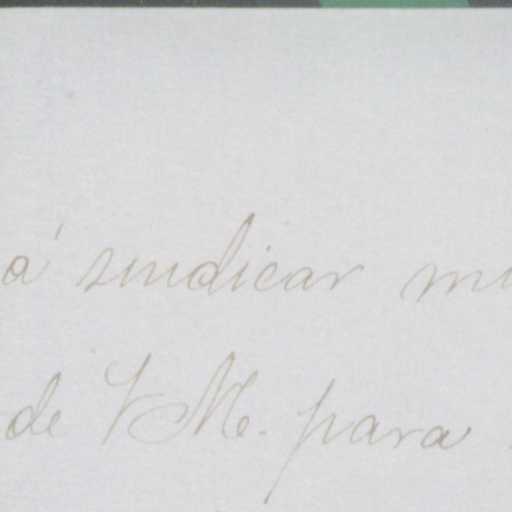 á sindicar
de V M. para